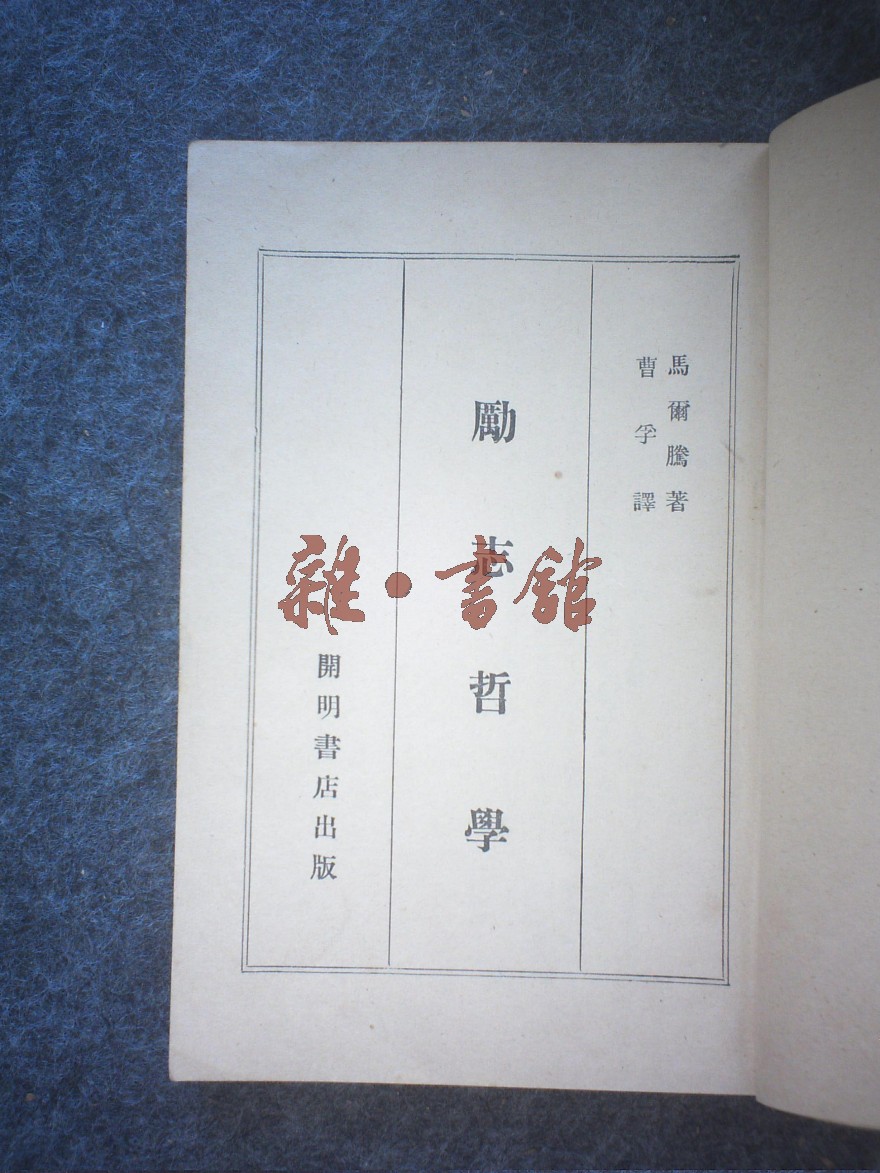 馬爾騰著
曹孚譯
勵志哲學
開明書店出版
雜·書館